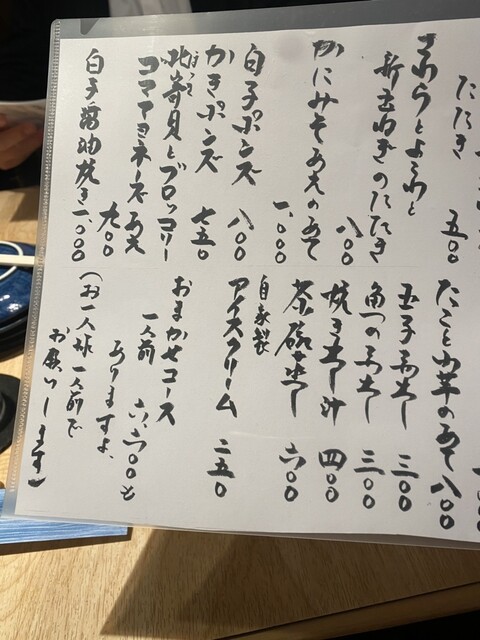 たたき 五〇〇
さわらとよもわと
新玉ねぎのたたき 八〇〇
かにみそあえのあて 一、〇〇〇
白子ポンズ 八〇〇
かきポンズ 七五〇
ほっき
北寄貝とブロッコリー
コマツヨネーズあえ 九〇〇
白子醤油焼き 一、〇〇〇
たこと山芋のあて 八〇〇
玉子ふわし 三〇〇
魚つのふわし 三〇〇
焼き出し汁 四〇〇
茶碗蒸し 六〇〇
自家製
アイスクリーム 二五〇
おまかせコース
一人前 六、六〇〇も
ありますよ、
（お一人様 一人前で
お願いします）